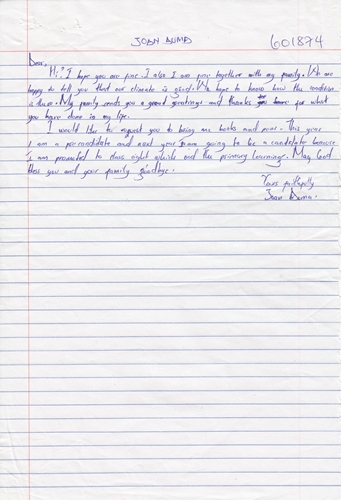 JOAN AUMA
601874
Dear,
Hi! I hope you are fine. I also I am fine together with my family. We are
happy to tell you that our climate is good. We hope to know how the condition
is there. My family sends you a good greetings and thanks for what
you have done in my life.
I would like to request you to bring me books and pens. This year
I am a precandidate and next year I am going to be a candidate because
I am promoted to class eight which end the primary learning. May God
bless you and your family goodbye.
Yours faithfully
Joan Auma.